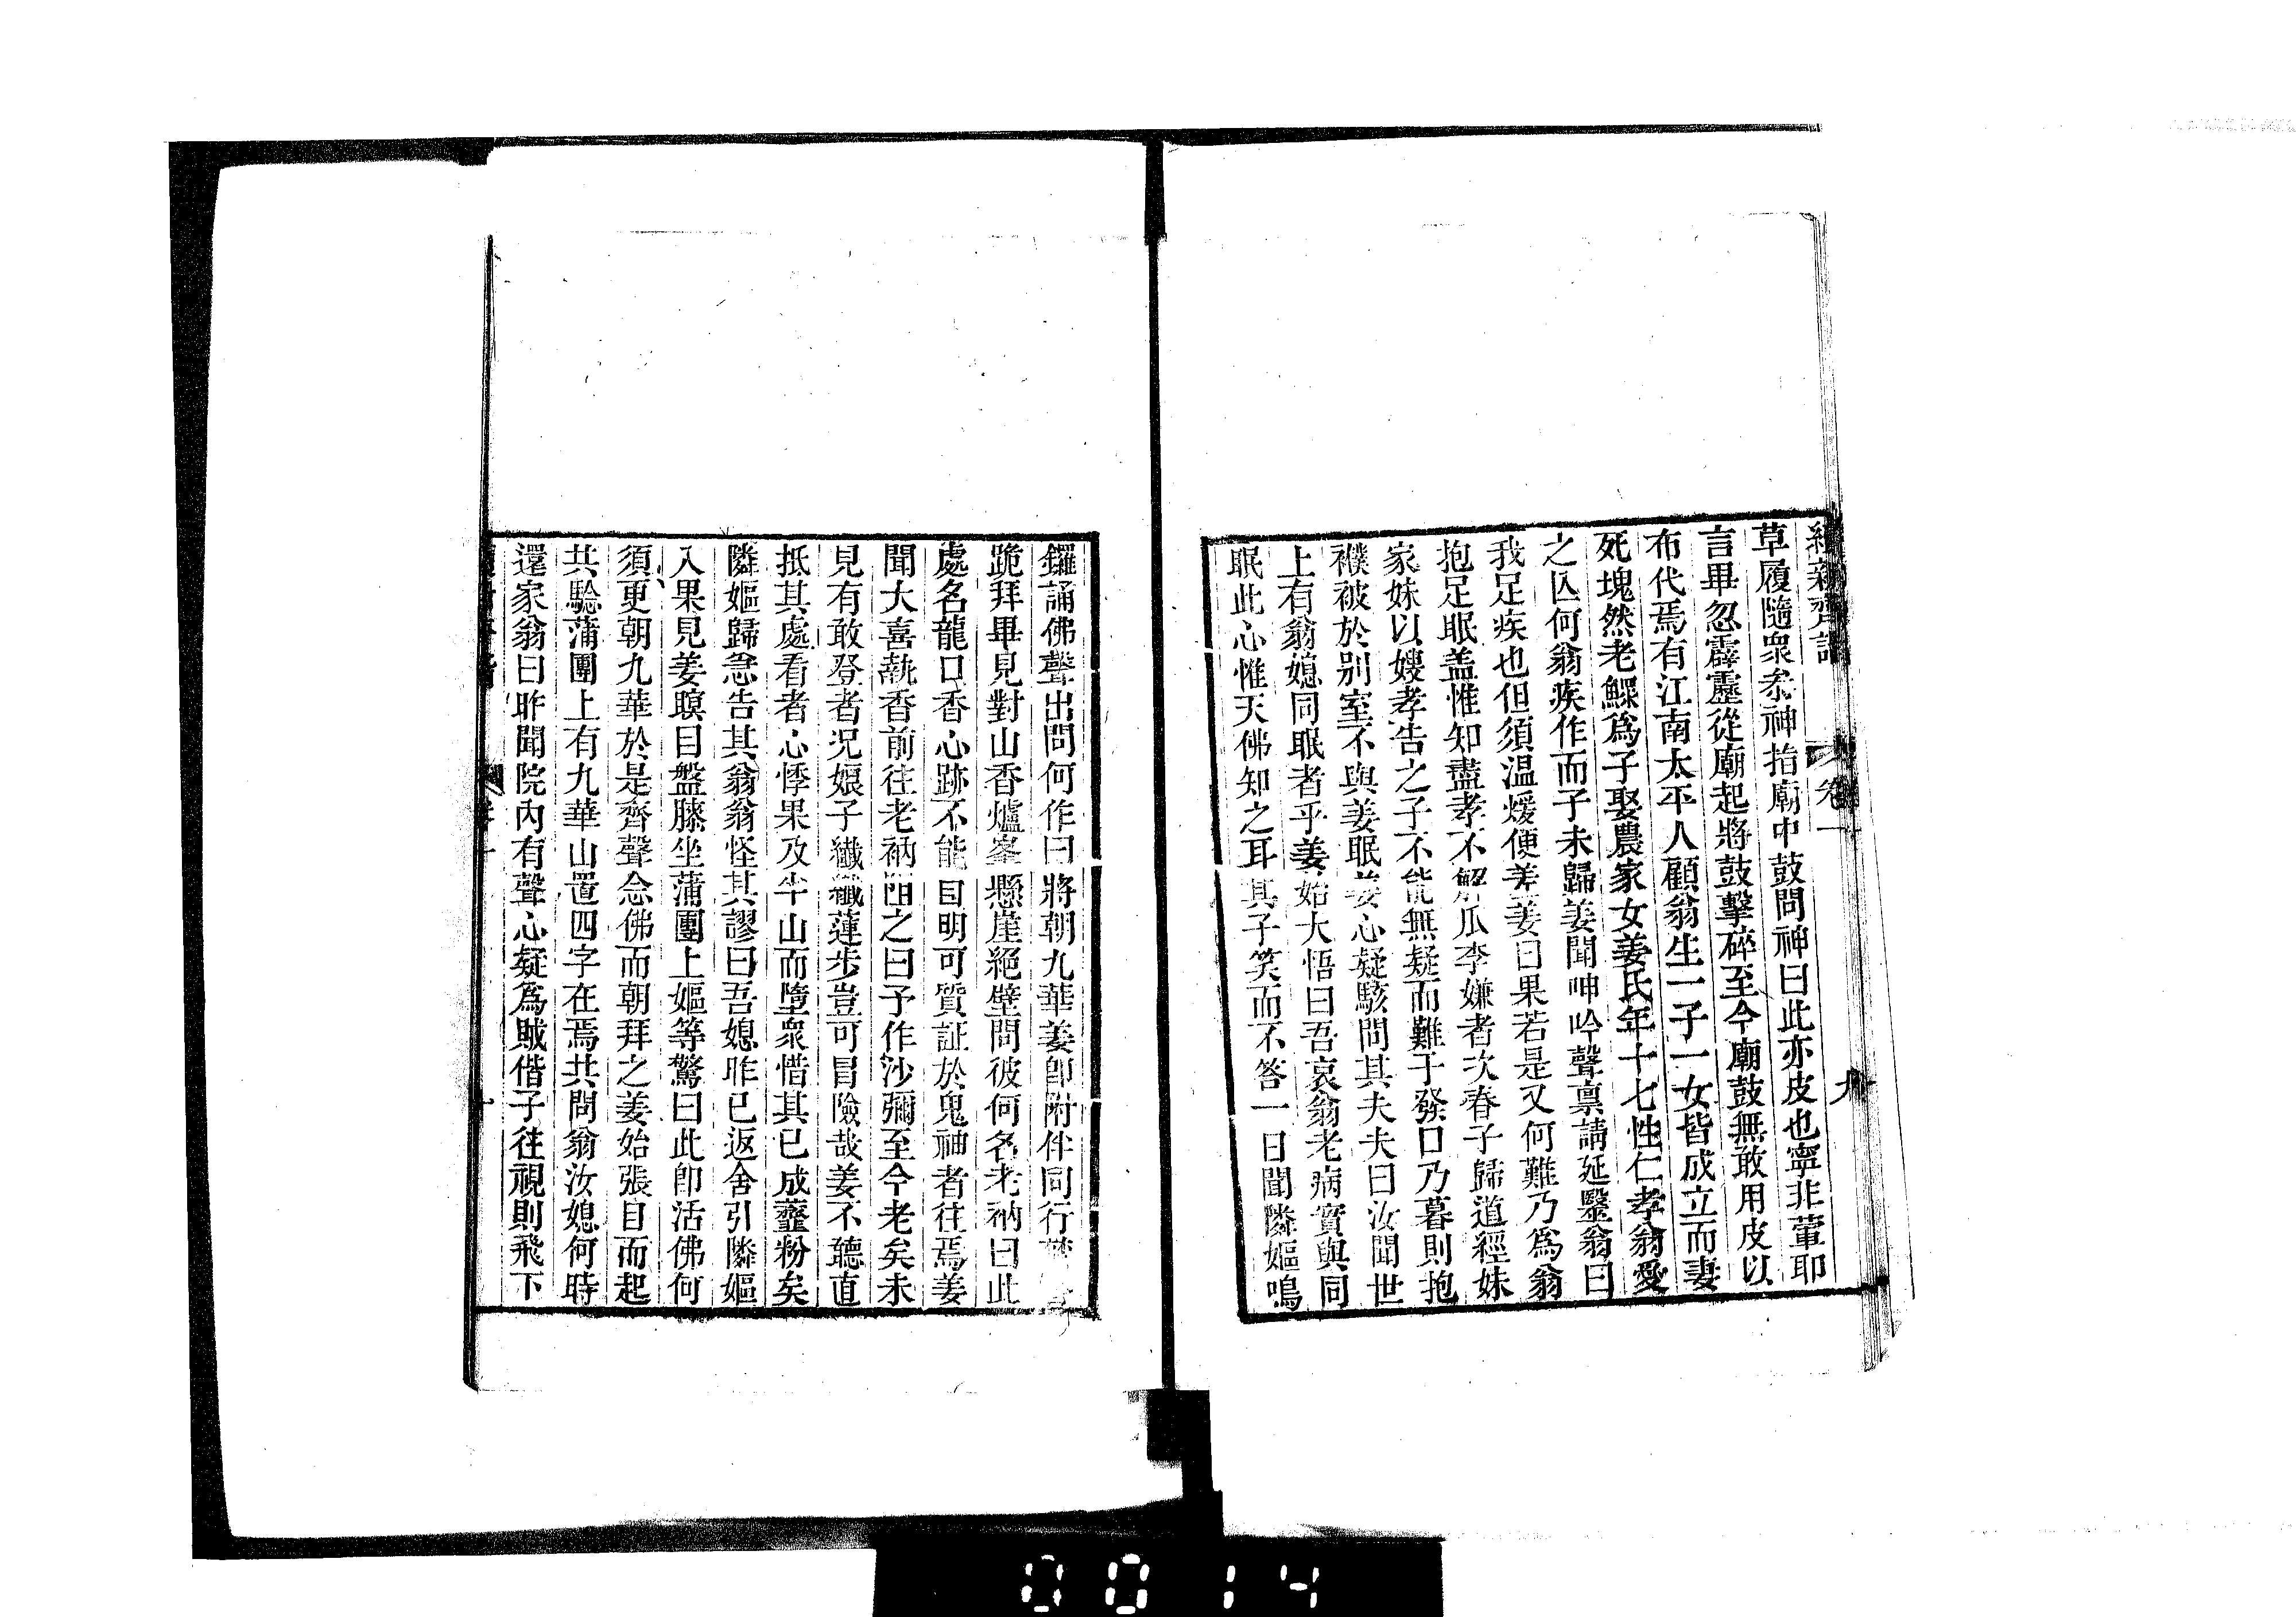 續新齊諧　卷一　九
草履隨衆叅神指廟中鼓問神曰此亦皮也寧非葷耶
言畢忽霹靂從廟起將鼓擊碎至今廟鼓無敢用皮以
布代焉有江南太平人顧翁生一子一女皆成立而妻
死塊然老鰥爲子娶農家女姜氏年十七性仁孝翁愛
之偶何翁疾作而子未歸姜聞呻吟聲稟請延醫翁曰
我足疾也但須温煖便差姜曰果若是又何難乃爲翁
抱足眠盖惟知盡孝不解瓜李嫌者次春子歸道經妹
家妹以嫂孝告之子不能無疑而難于發口乃暮則抱
襆被於别室不與姜眠姜心疑駭問其夫夫曰汝聞世
上有翁媳同眠者乎姜始大悟曰吾哀翁老病實與同
眠此心惟天佛知之耳其子笑而不答一日聞隣嫗鳴
鑼誦佛聲出問何作曰將朝九華姜卽附伴同行
跪拜畢見對山香爐峯懸崖絕壁問彼何名老衲曰此
處名龍口香心跡不能自明可質証於鬼神者往焉姜
聞大喜執香前往老衲阻之曰予作沙彌至今老矣未
見有敢登者况娘子纖纖蓮步豈可冒險哉姜不聽直
抵其處看者心悸果及半山而墮衆惜其已成虀粉矣
隣嫗歸急告其翁翁怪其謬曰吾媳昨已返舍引隣嫗
入果見姜瞑目盤膝坐蒲團上嫗等驚曰此卽活佛何
須更朝九華於是齊聲念佛而朝拜之姜始張目而起
共驗蒲團上有九華山置四字在焉共問翁汝媳何時
還家翁曰昨聞院內有聲心疑爲賊偕子往視則飛下
0014